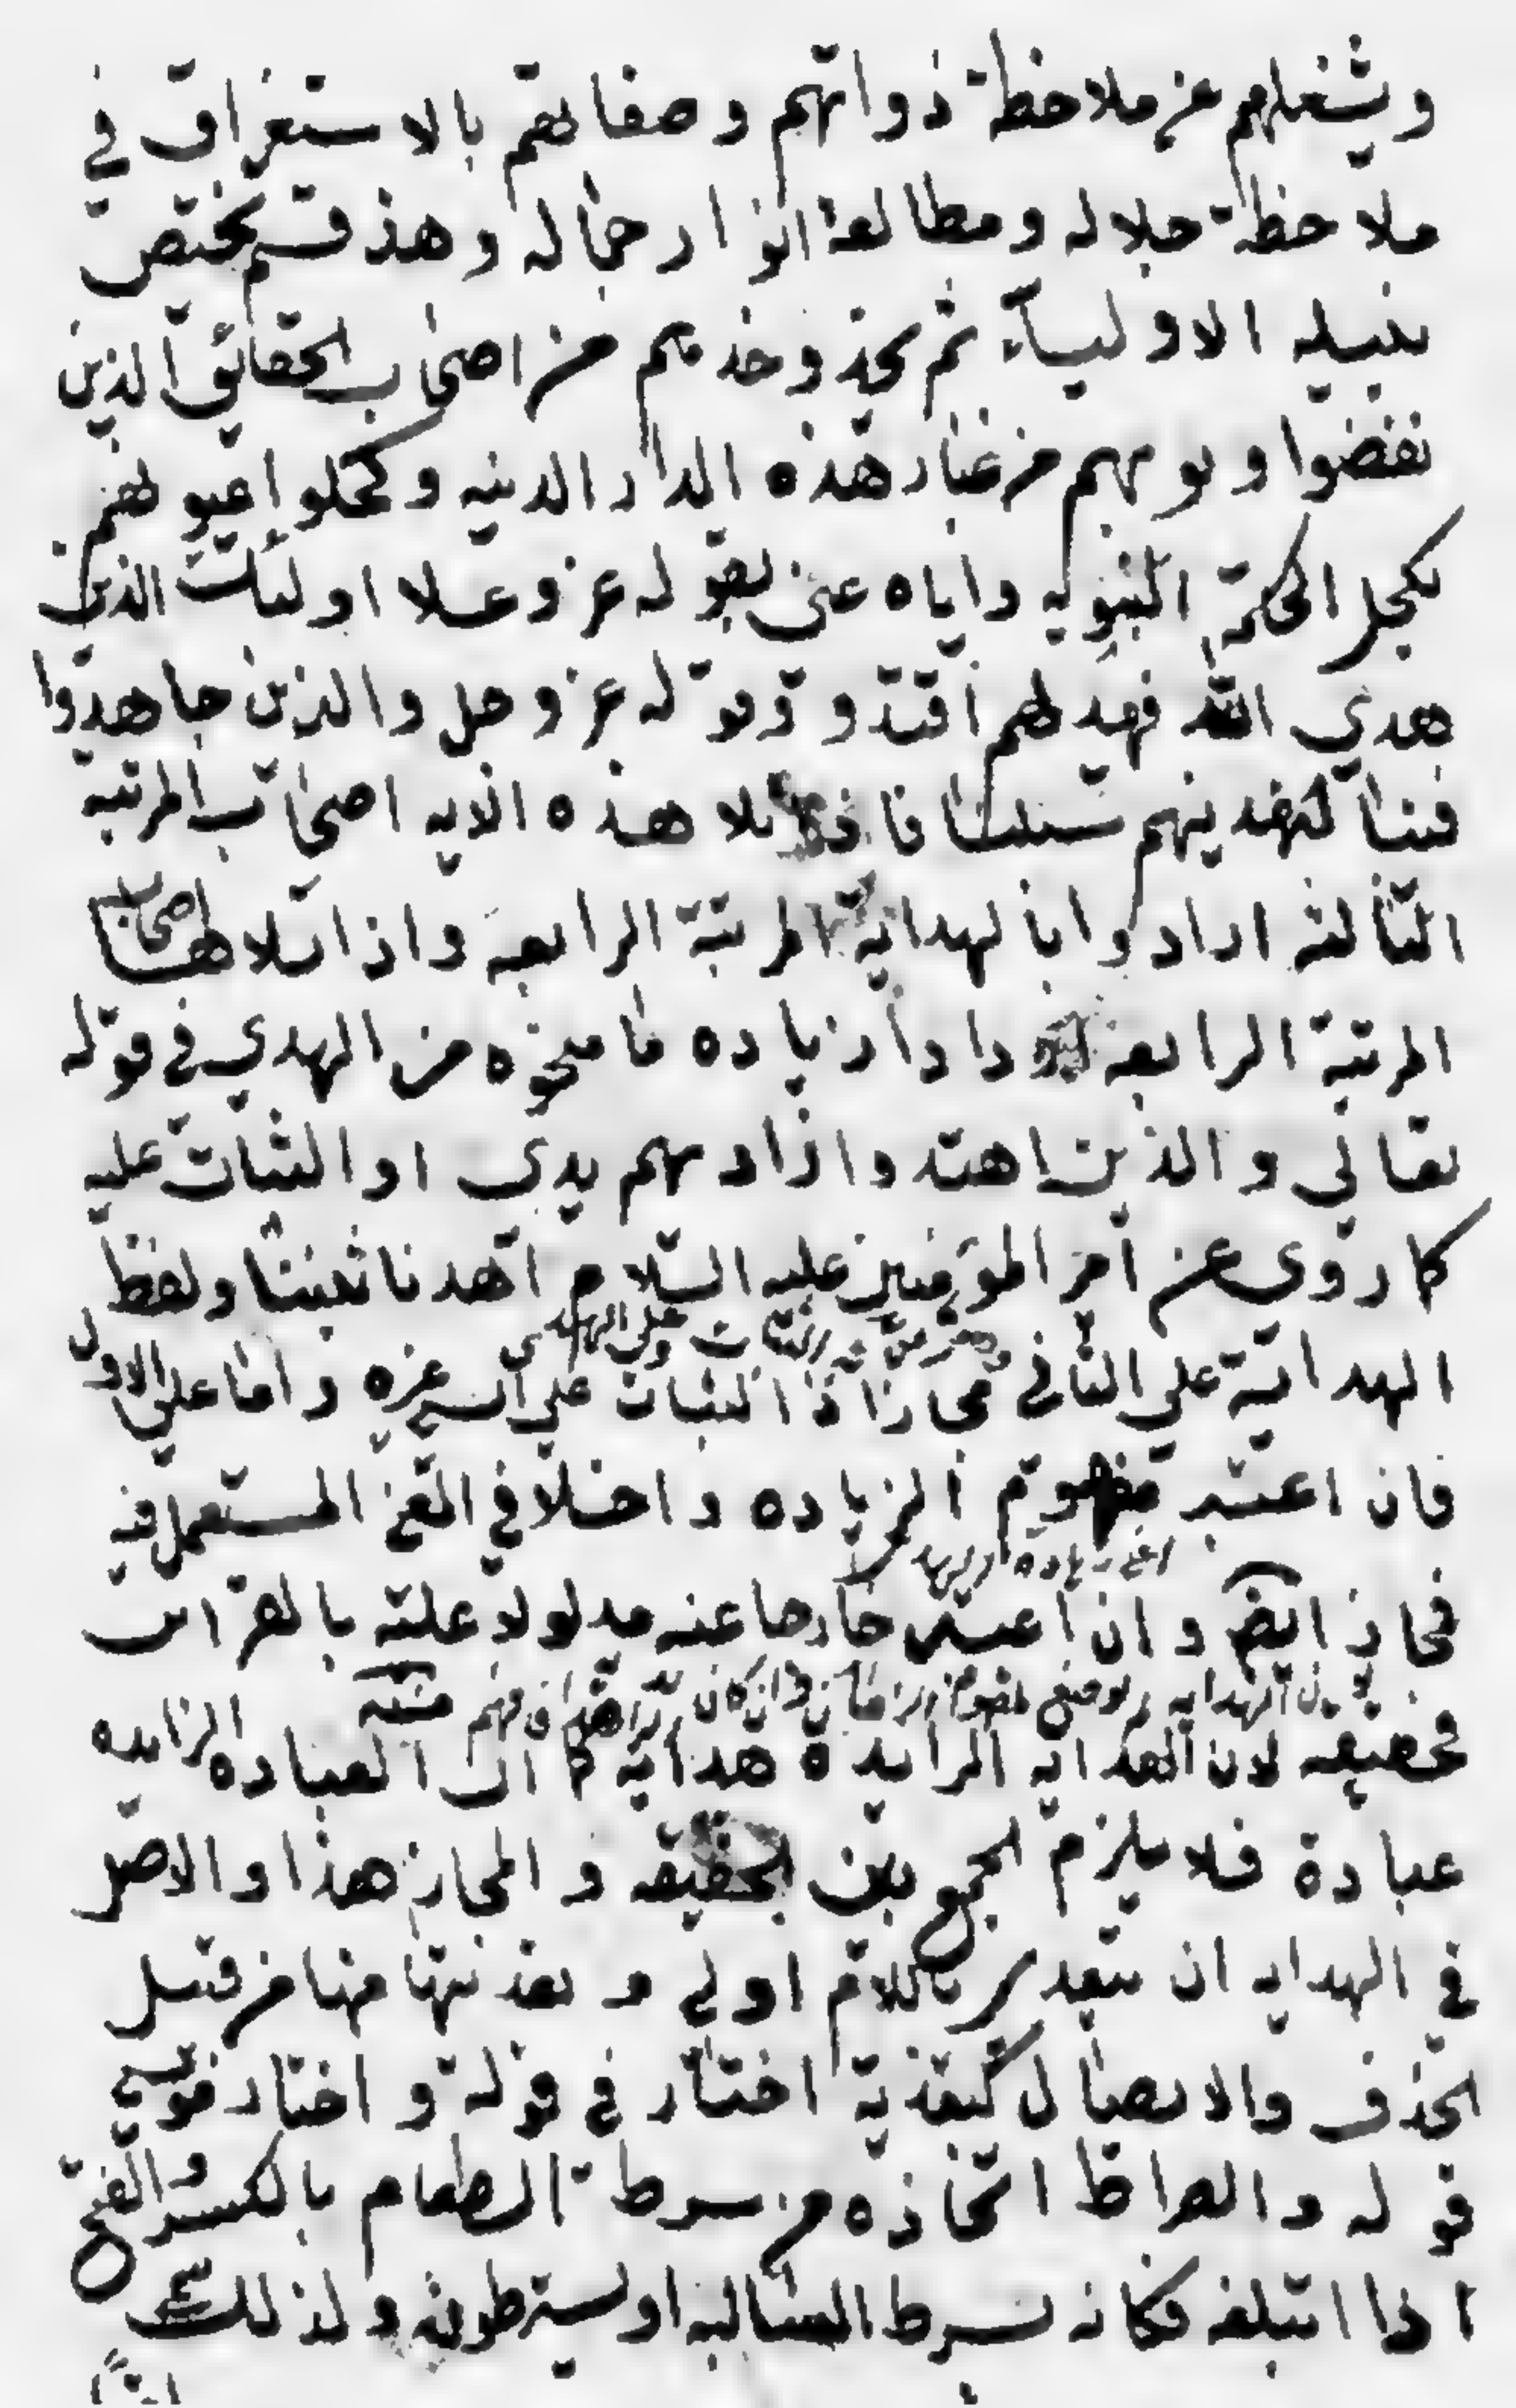 ويشغلهم عن ملاحظة ذواتهم وصفاتهم بالاستغراق في
ملاحظة جلاله ومطالعة انوار جماله وهذ قسم يختص
بنيله الاولياء ثم يحذو حذوهم من اصحاب الحقائق الذين
نفضوا ذيولهم من غبار هذه الدار الدنيه وكحلوا عيونهم
بكحل الحكمة النبويه واياه عنى بقوله عز وعلا اولئك الذين
هدى الله فبهديهم اقتده وقوله عز وجل والذين جاهدوا
فينا لنهدينهم سبلنا فاذا تلا هذه الايه اصحاب المرتبه
الثالثه ارادوا بالهداية المرتبة الرابعه واذا تلاها اصحاب
المرتبة الرابعه ارادوا زياده ما منحوه من الهدى في قوله
تعالى والذين اهتدوا زادهم هدى او الثبات عليه
كما روى عن امير المؤمنين عليه السلام اهدنا ثبتنا ولفظ
الهداية على الثاني مجاز اذ الثبات على الشيء غيره واما على الاول
فان اعتبر مفهوم الزياده داخلا في المعنى المستعمل فيه
اعني زيادة الهدى
فمجاز ايضا وان اعتبر خارجا عنه مدلولا عليه بالقرائن
فحقيقه لان الهدايه الزايدة هداية كما ان العباده الزايده
عبادة فلا يلزم الجمع بين الحقيقه والمجاز هذا والاصل
في الهدايه ان يتعدى باللام او الى وتعديتها منها من قبيل
الحذف والايصال كتعدية اختار في قوله واختار موسى
قوله والصراط اتخاذه من سرط الطعام بالكسر والفتح
اذا ابتلعه فكانه يسرط السابله او يسترطونه ولذلك سمى